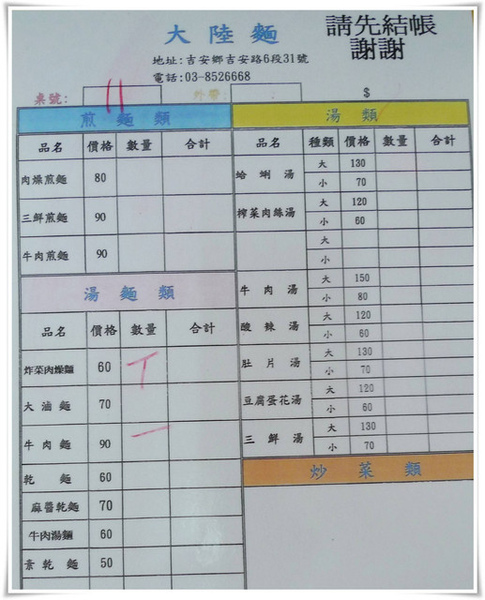 大陸麵
請先結帳
謝謝
地址:吉安鄉吉安路6段31號
電話:03-8526668
桌號: 11 外帶: : $
煎麵類
品名 價格 數量 合計
肉燥煎麵 80
三鮮煎麵 90
牛肉煎麵 90
湯麵類
品名 價格 數量 合計
炸菜肉燥麵 60 T
大滷麵 70
牛肉麵 90 一
乾麵 60
麻醬乾麵 70
牛肉湯麵 60
素乾麵 50
湯類
品名 種類 價格 數量 合計
蛤蜊湯 大 130
小 70
榨菜肉絲湯 大 120
小 60
大
小
牛肉湯 大 150
小 80
酸辣湯 大 120
小 60
肚片湯 大 130
小 70
豆腐蛋花湯 大 120
小 60
三鮮湯 大 130
小 70
炒菜類